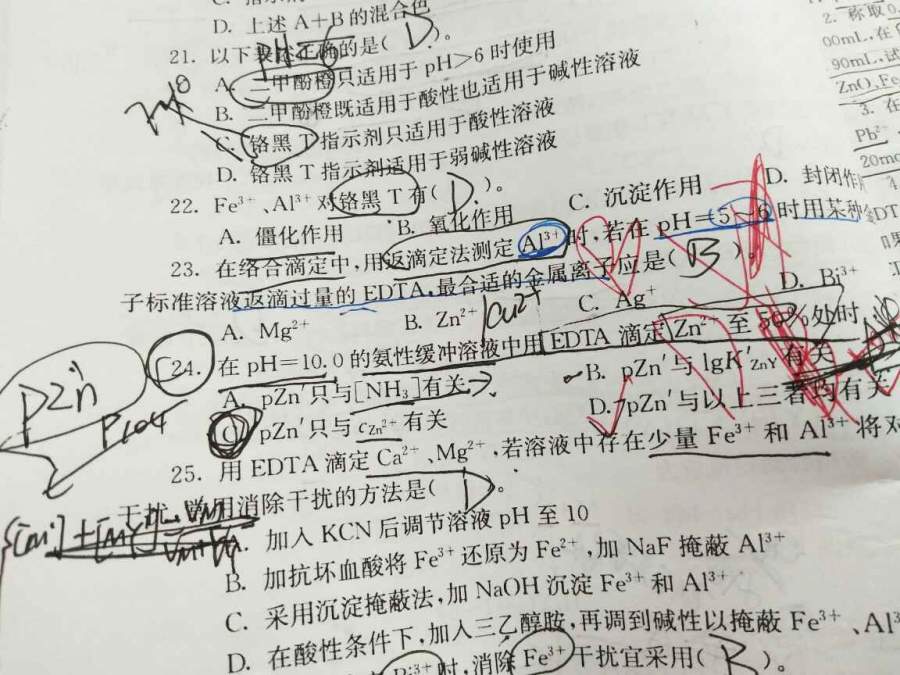 D. 上述 A+B 的混合色
21. 以下表述正确的是( D )。
A. 二甲酚橙只适用于 pH>6 时使用
B. 二甲酚橙既适用于酸性也适用于碱性溶液
C. 铬黑 T 指示剂只适用于酸性溶液
D. 铬黑 T 指示剂适用于弱碱性溶液
22. Fe³⁺、Al³⁺ 对铬黑 T 有( D )。
A. 僵化作用 B. 氧化作用 C. 沉淀作用 D. 封闭作
23. 在络合滴定中,用返滴定法测定 Al³⁺ 时,若在 pH=5~6 时用某种
子标准溶液返滴过量的 EDTA,最合适的金属离子应是( B )。
A. Mg²⁺ B. Zn²⁺ Cu²⁺ C. Ag⁺ D. Bi³⁺
24. 在 pH=10.0 的氨性缓冲溶液中用 EDTA 滴定 Zn²⁺ 至 50%处时
A. pZn′只与[NH₃]有关 B. pZn′与 lgK′ZnY 有关
C. pZn′只与 cZn²⁺ 有关 D. pZn′与以上三者均有关
pZn′
25. 用 EDTA 滴定 Ca²⁺、Mg²⁺,若溶液中存在少量 Fe³⁺ 和 Al³⁺ 将对
干扰 用消除干扰的方法是( D )。
A. 加入 KCN 后调节溶液 pH 至 10
B. 加抗坏血酸将 Fe³⁺ 还原为 Fe²⁺,加 NaF 掩蔽 Al³⁺
C. 采用沉淀掩蔽法,加 NaOH 沉淀 Fe³⁺ 和 Al³⁺
D. 在酸性条件下,加入三乙醇胺,再调到碱性以掩蔽 Fe³⁺、Al³
Bi³⁺时,消除 Fe³⁺ 干扰宜采用( B )。
2. 称取 0.
00mL,在
90mL,试
ZnO、Fe
3. 在
Pb²⁺
20mo